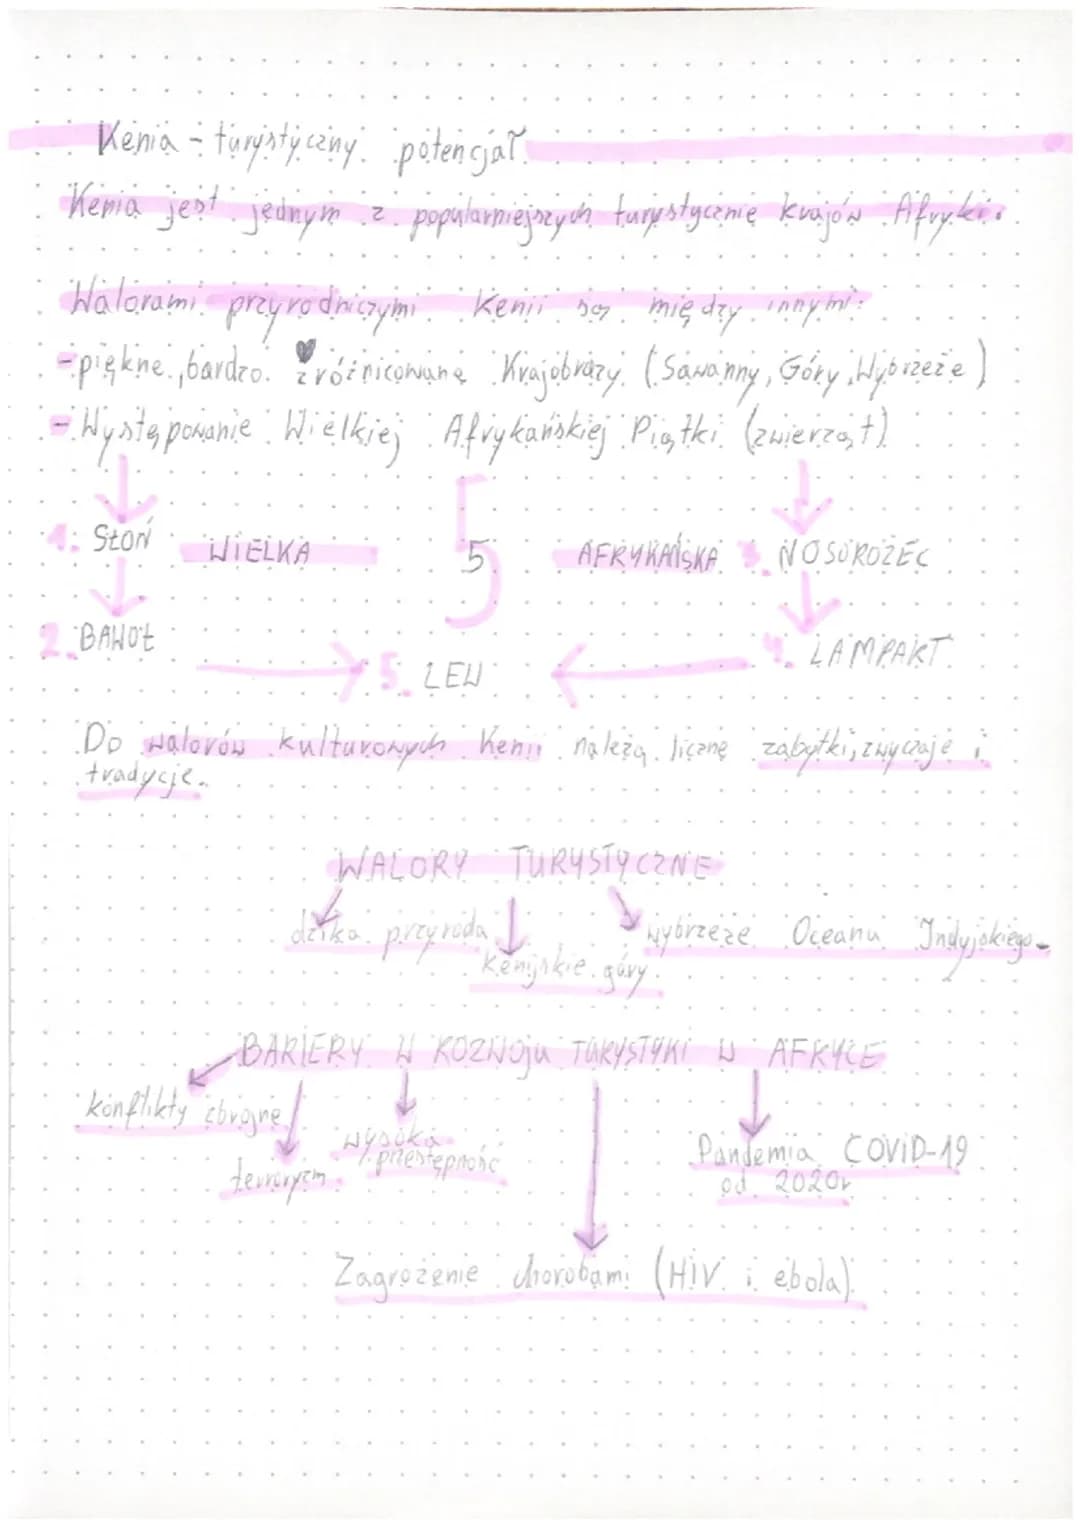 Kenia - turystyczny potencjał
Kenia jest jednym z popularniejszych turystycznie krajów Afryki.
Walorami przyrodniczymi Kenii są między innymi:
- piękne, bardzo zróżnicowane Krajobrazy (Sawanny, Góry, Wybrzeże)
- Występowanie Wielkiej Afrykańskiej Piątki (zwierząt)
1. SŁOŃ WIELKA 5 AFRYKAŃSKA 3. NOSOROŻEC
2. BAWÓŁ 4. LAMPART
5. LEW
Do walorów kulturowych Kenii należą liczne zabytki, zwyczaje i
tradycje.
WALORY TURYSTYCZNE
dzika przyroda wybrzeże Oceanu Indyjskiego
Kenijskie góry
BARIERY W ROZWOju TURYSTYKI W AFRYCE
konflikty zbrojne
terroryzm wysoka przestępność Pandemia COVID-19
od 2020r
Zagrożenie chorobami (HIV i ebola)